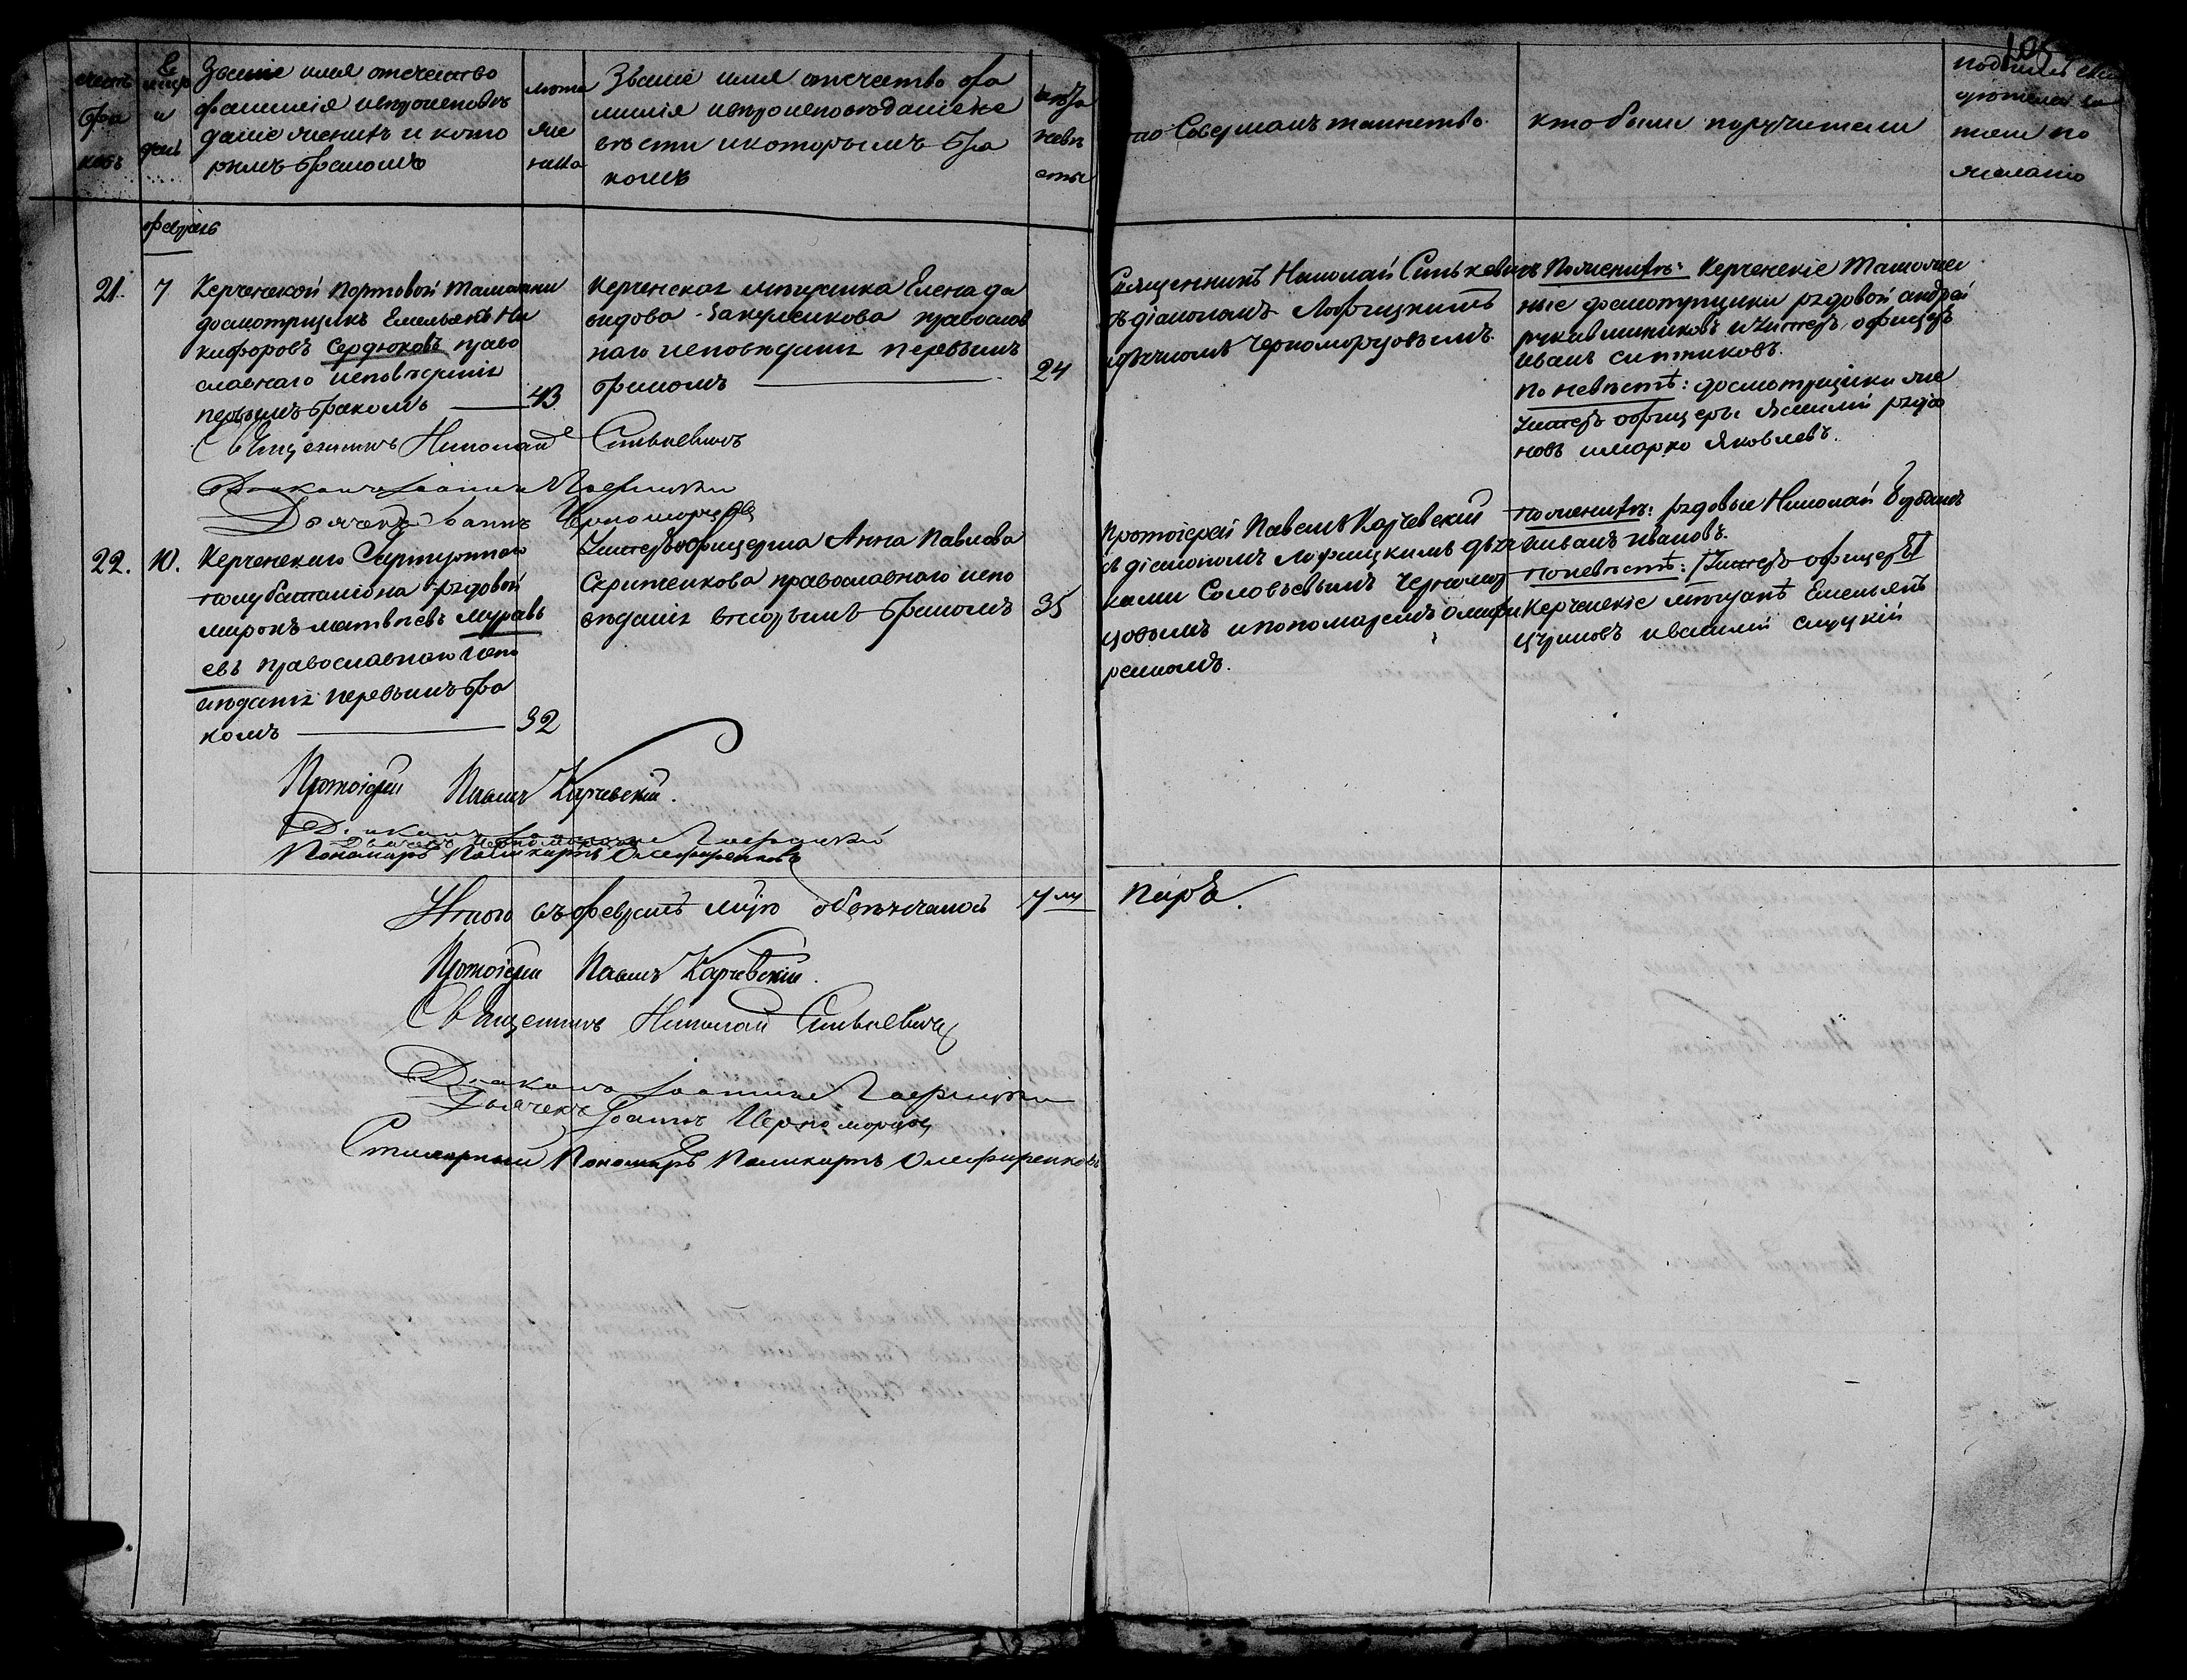 105
счетъ
бра
ковъ
мѣсяцъ
и
день
Званіе имя отечество
фамилія ивѣроисповѣ
даніе жениха и кото
рымъ бракомъ
лѣта
же
ниха
Званіе имя отечество фа
милія ивѣроисповѣданіе не
вѣсты икоторымъ бра
комъ
лѣта
невѣ
сты
кто Совершалъ таинство
кто были поручители
подпись сви
дѣтелей за
писи по
желанію
февраль
21.
7
Керченской Портовой Таможни
досмотрщикъ Емельянъ Ни
кифоровъ Сердюковъ право
славнаго исповѣданія
первымъ бракомъ
43
Керченская мѣщанка Елена да
видова православ
наго исповѣданія первымъ
бракомъ
24
Священникъ Николай Синькевичъ
съ діакономъ Лофицкимъ
идьячкомъ Черноморцовымъ.
По женихѣ: Керченскіе Таможен
ные досмотрщики рядовой андрей
рукавишниковъ иунтеръ офицеръ
иванъ ситниковъ.
По невѣстѣ: досмотрщики же
унтеръ офицеры
новъ имарко Яковлевъ.
Священникъ Николай Синькевичъ
Діаконъ Іоаннъ Лофицкій
Дьячекъ Іоаннъ Черноморцовъ
22.
10.
Керченскаго Гарнизоннаго
полубаталіона рядовой
миронъ матвѣевъ муравь
евъ православнаго испо
вѣданія первымъ бра
комъ
32
Унтеръ офицерша Анна Павлова
Скрипникова православнаго испо
вѣданія вторымъ бракомъ
35
Протоіерей Павелъ Карчевскій
съ діакономъ Лофицкимъ дьяч
ками Соловьевымъ Черномор
цовымъ ипономаремъ Олифи
ренкомъ.
по женихѣ: рядовые Николай
иванъ ивановъ.
по невѣстѣ: Унтеръ офицеръ
Керченскіе мѣщане Емельянъ
ивасилій слуцкій
Протоіерей Павелъ Карчевскій.
Діаконъ Іоаннъ Лофицкій
Дьячекъ Черноморцовъ
Пономарь Поликарпъ Олефиренковъ
Итого въ февралѣ мцѣ обвѣнчалось 7мь паръ.
Протоіерей Павелъ Карчевскій.
Священникъ Николай Синькевичъ
Діаконъ Іоаннъ Лофицкій
Дьячекъ Іоаннъ Черноморцовъ
Стихарный Пономарь Поликарпъ Олефиренковъ